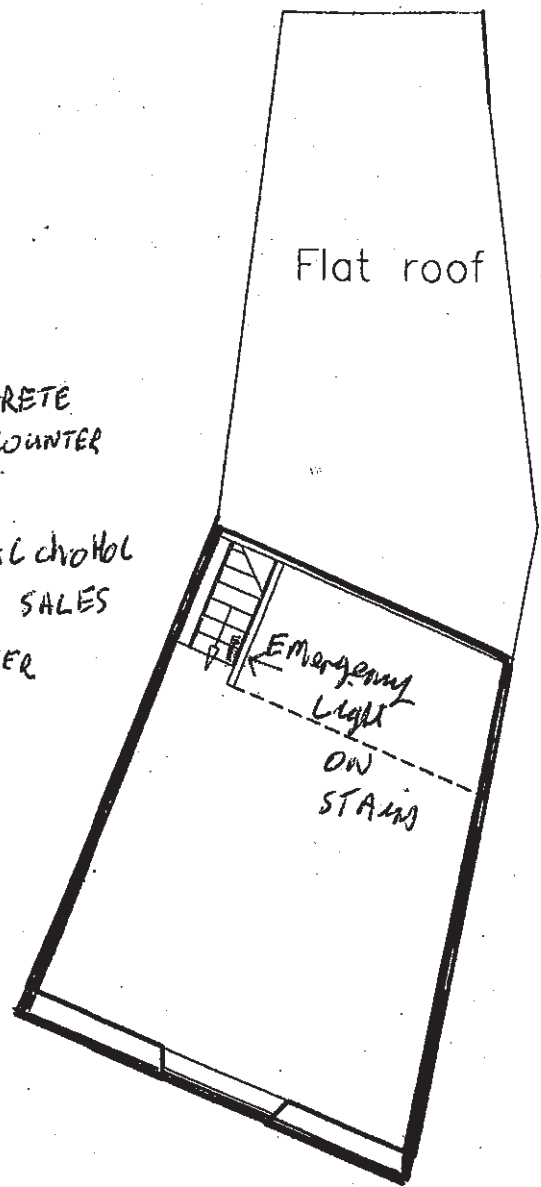 Flat roof
RETE
COUNTER
ALCHOHOL
SALES
ER
EMergency
Light
ON
STAIRS